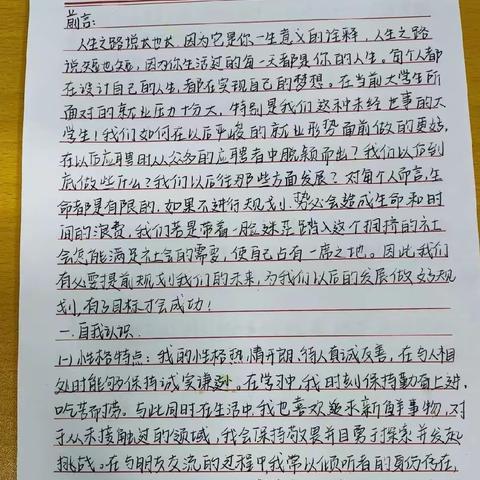 前言:
人生之路说长也长,因为它是你一生意义的诠释,人生之路
说短也短,因为你生活过的每一天都是你的人生。每个人都
在设计自己的人生,都在实现自己的梦想。在当前大学生所
面对的就业压力十分大,特别是我们这种未经世事的大
学生!我们如何在以后严峻的就业形势面前做的更好,
在以后应聘时从众多的应聘者中脱颖而出?我们以后到
底做些什么?我们以后往那些方面发展?对每个人而言,生
命都是有限的,如果不进行规划,势必会造成生命和时
间的浪费,我们若是带着一脸迷茫踏入这个拥挤的社
会怎能满足社会的需要,使自己占有一席之地。因此我们
有必要提前规划我们的未来,为我们以后的发展做好规
划,有了目标才会成功!
一.自我认识.
(一)性格特点:我的性格热情开朗,待人真诚友善,在与人相
处时能够保持诚实谦逊。在学习中我时刻保持勤奋上进,
吃苦耐劳。与此同时在生活中我也喜欢追求新鲜事物,对
于从未接触过的领域,我会保持敬畏并且勇于探索并发起
挑战。在与朋友交流的过程中我常以倾听者的身份存在,